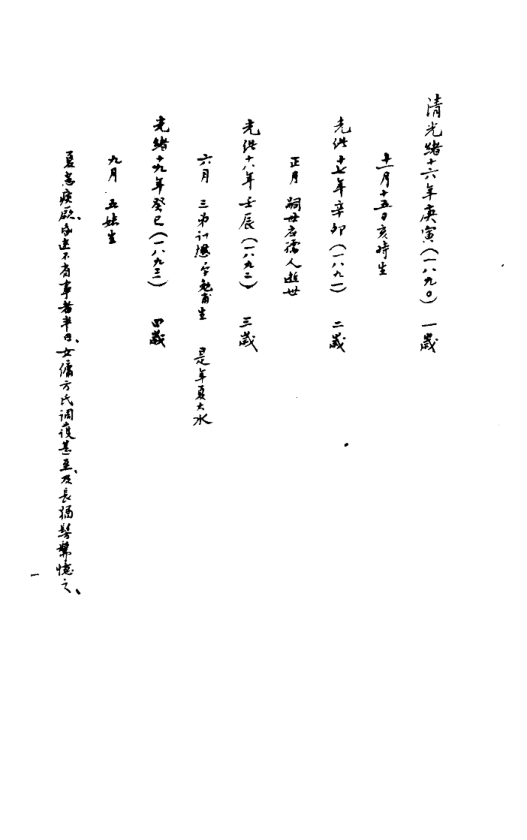 清光緒十六年庚寅(一八九〇) 一歲
十一月十五日亥時生
光緒十七年辛卯(一八九一) 二歲
正月 嗣母唐孺人逝世
光緒十八年壬辰(一八九二) 三歲
六月 三弟計 字勉甫生 是年夏大水
光緒十九年癸巳(一八九三) 四歲
九月 五妹生
夏患疾厥、昏迷不省事者半日、女傭方氏調護甚至、及長猶髣髴憶之、
一